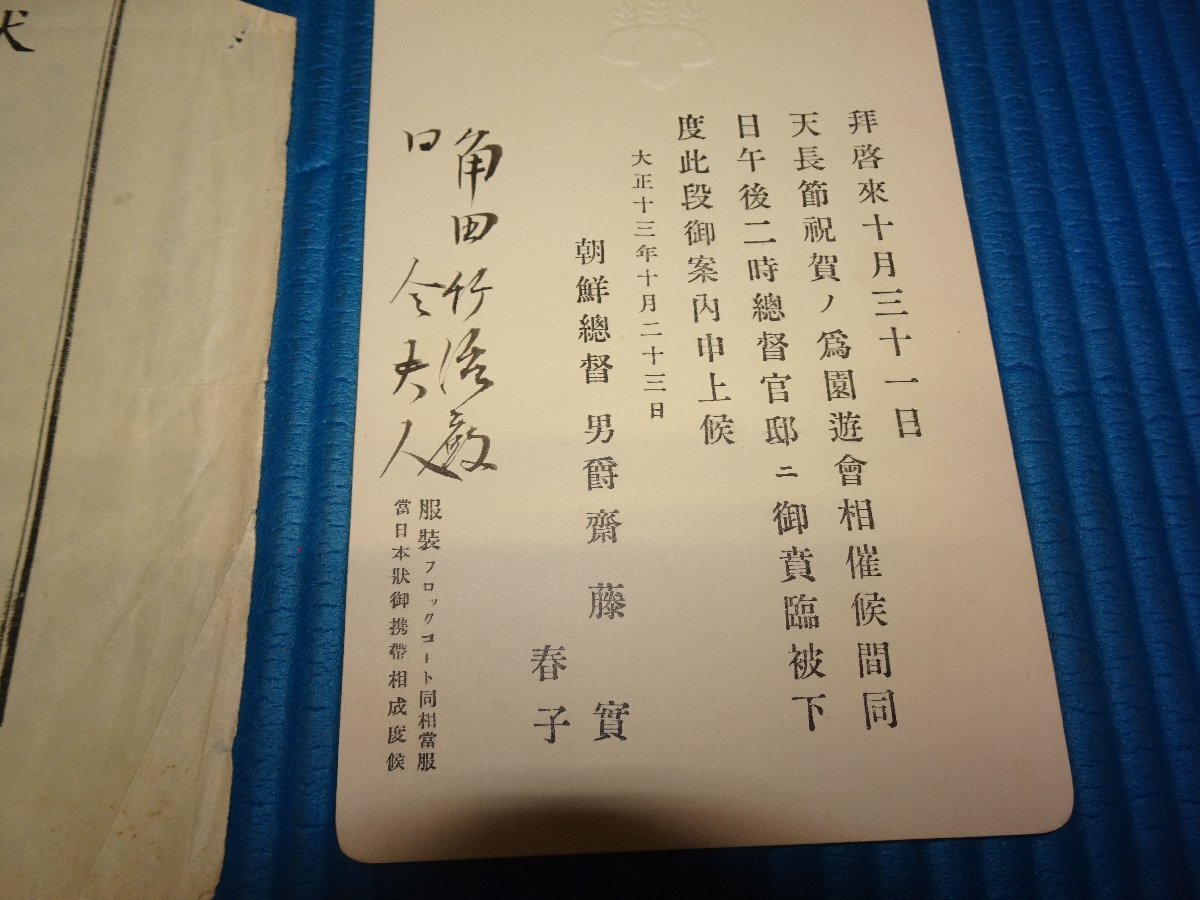 拜啓來十月三十一日
天長節祝賀ノ爲園遊會相催候間同
日午後二時總督官邸ニ御賁臨被下
度此段御案內申上候
大正十三年十月二十三日
朝鮮總督 男爵 齋藤 實
春子
角田竹治殿
口 令夫人
服裝フロックコート同相當服
當日本狀御携帶相成度候
状